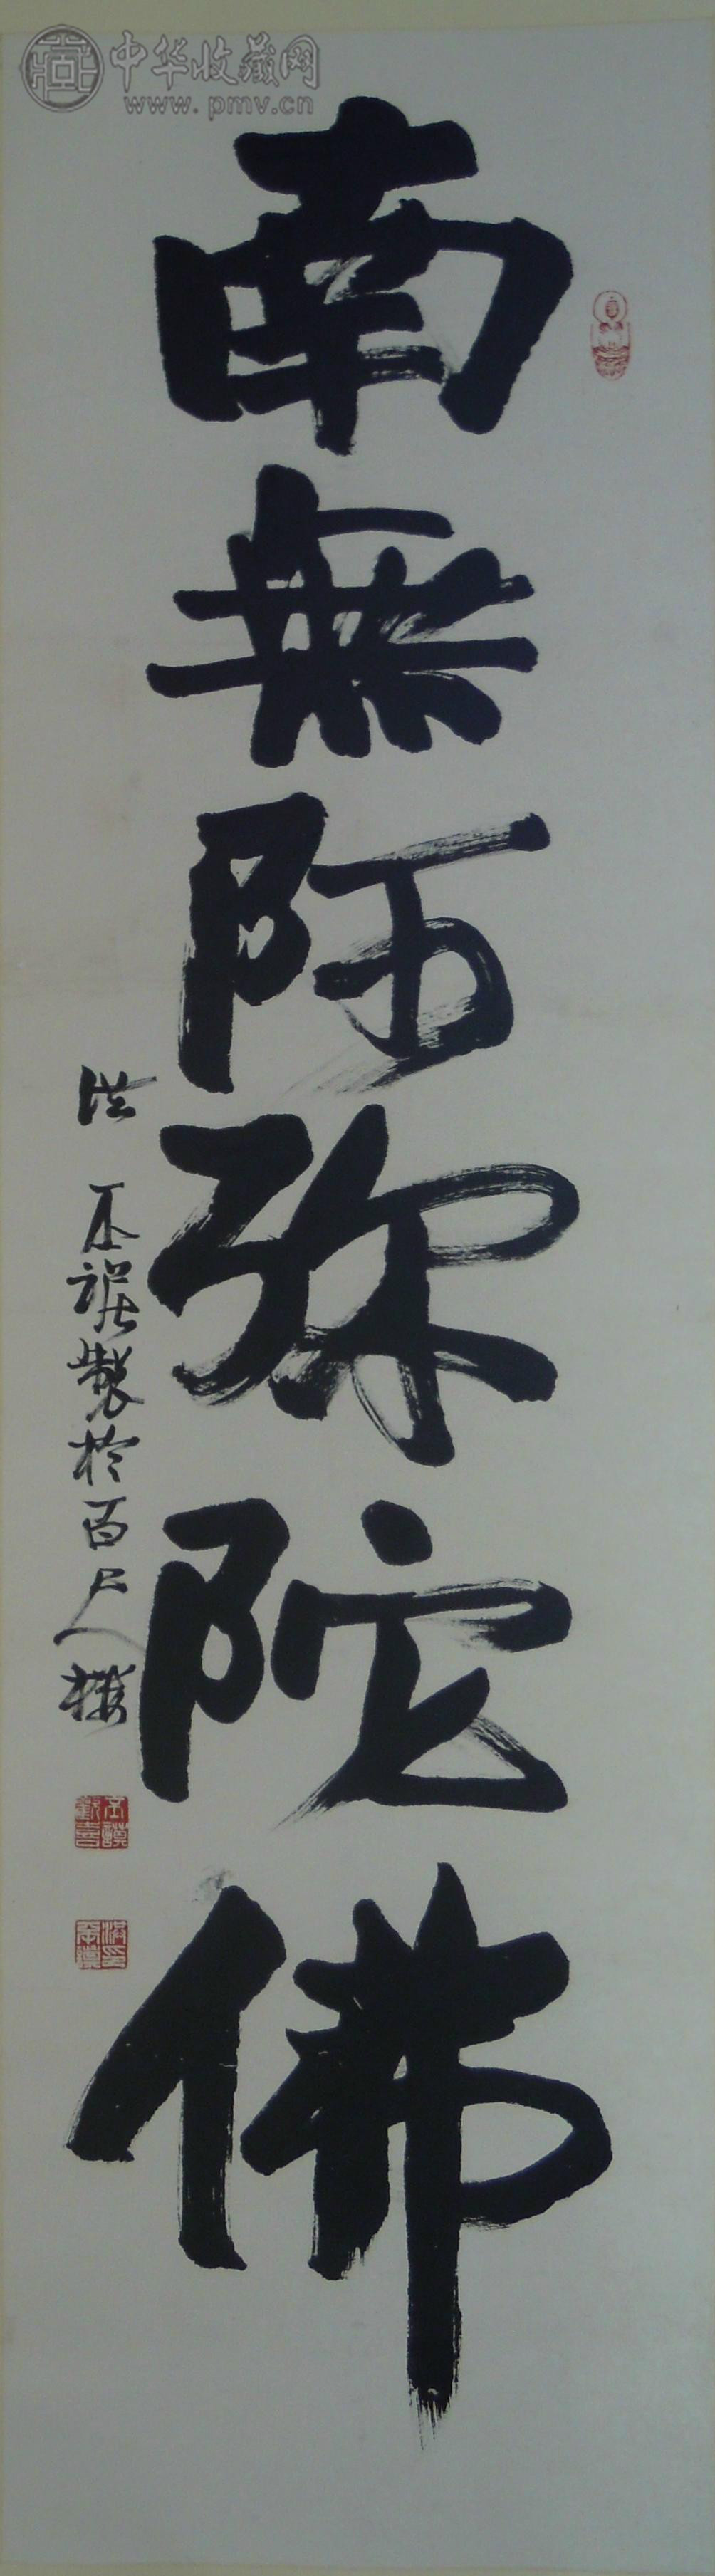 中华收藏网
www.pmv.cn
南無阿弥陀佛
洪丕謨製於百尺樓